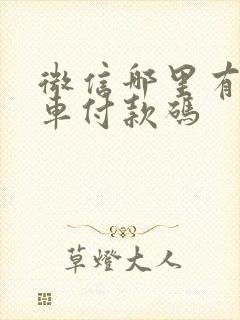 微信哪里有
車付款碼
草燈大人